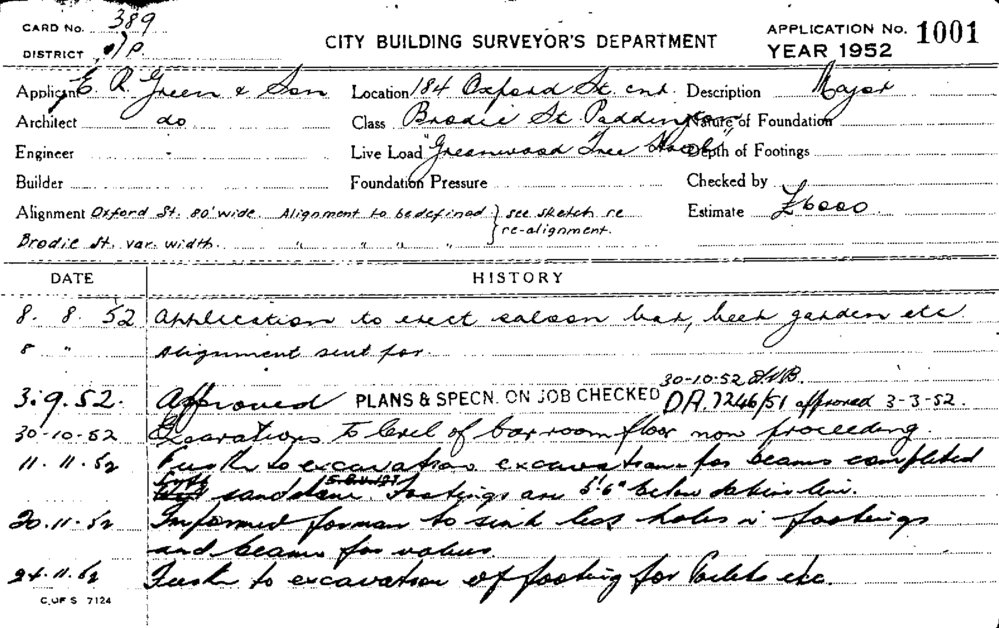 CARD No. 389
DISTRICT P.
CITY BUILDING SURVEYOR'S DEPARTMENT
APPLICATION No. 1001
YEAR 1952
Applicant E. R. Green & Son Location 184 Oxford St. cnr. Description Major
Architect do Class Brodie St Paddington Nature of Foundation
Engineer - Live Load "Greenwood Tree Hotel" Depth of Footings
Builder Foundation Pressure Checked by
Alignment Oxford St. 80' wide. Alignment to be defined } see sketch re Estimate £6000
Brodie St. var. width. " " " " } re-alignment.
DATE HISTORY
8. 8. 52 Application to erect saloon bar, beer garden etc
8 " Alignment sent for.
30-10-52
3.9.52. Approved PLANS & SPECN. ON JOB CHECKED DA. 7246/51 approved 3-3-52.
30-10-52 Excavations to level of bar room floor now proceeding.
11.11.52 Further to excavation excavations for beams completed
sandstone. Footings are 5'6" below
20.11.52 Informed forman to sink holes in footings
and beams for
24.11.52 Further to excavation of footing for toilets etc.
C. OF S 7124